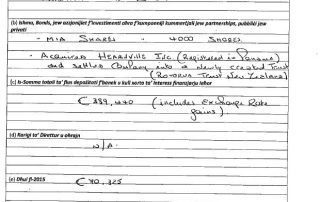 (b) Ishma, Bonds, jew azzjonijiet f'investimenti ohra f'kumpanniji kummerċjali jew partnerships, pubbliċi jew privati
- MIA SHARES - 4000 SHARES.
- Acquired Hearnville Inc. (Registered in Panama) and settled Company into a newly created Trust (Rotorua Trust New Zealand)
(c) Is-Somma totali ta' flus depożitati f'banek u kull sorta ta' interess finanzjarju ieħor
€ 389,440 (includes Exchange Rate gains).
(d) Karigi ta' Direttur u oħrajn
N/A.
(e) Dħul fl-2015
€ 70,325